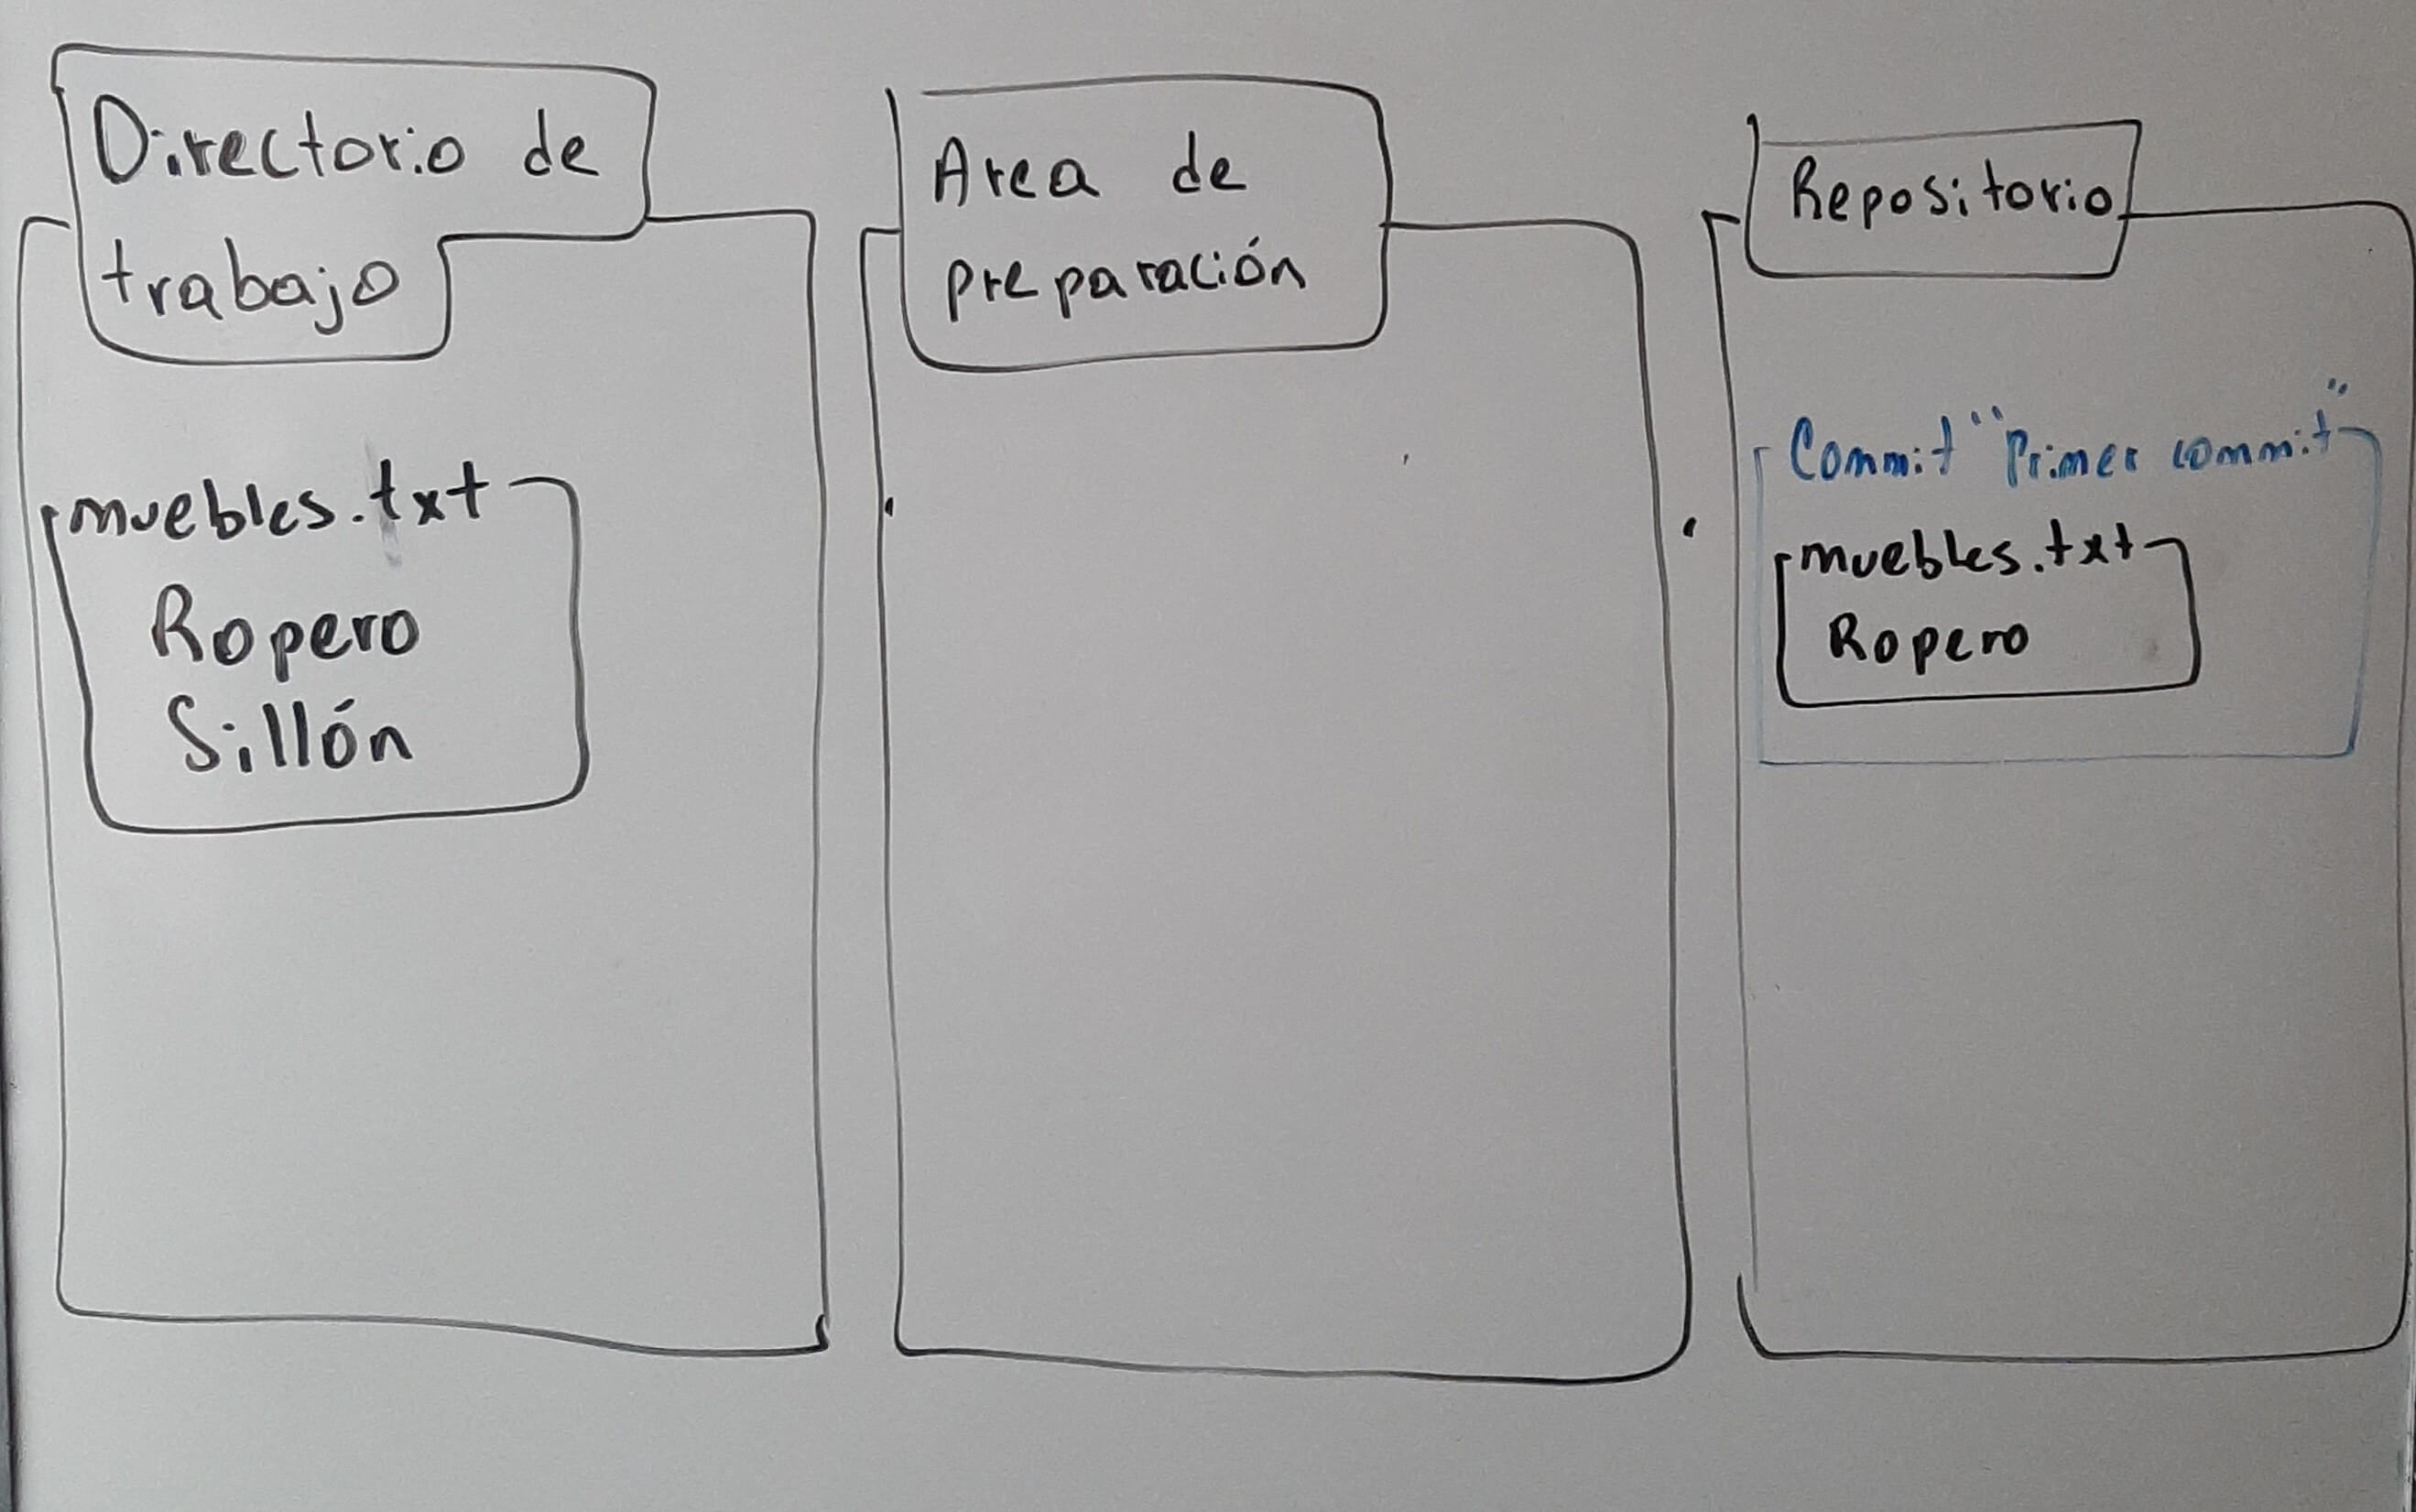 Directorio de
trabajo
muebles.txt
Ropero
Sillón
Area de
preparación
Repositorio
Commit "Primer commit"
muebles.txt
Ropero